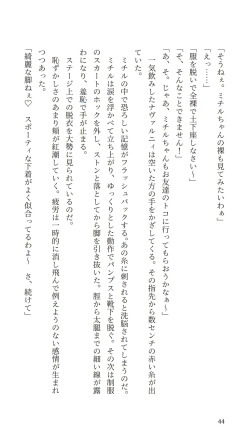 「そうねぇ。ミチルちゃんの裸も見てみたいわぁ」
「えっ……」
「服を脱いで全裸で土下座しなさい〜」
「そ、そんなことできません！」
「あ、そ。じゃあ、ミチルちゃんもお友達のトコに行ってもらおうかなぁ〜」
一気飲みしたナヴァルニィは空いた方の手をかざしてくる。その指先から数センチの赤い糸が出
ていた。
ミチルの中で恐ろしい記憶がフラッシュバックする。あの糸に刺されると洗脳されてしまうのだ。
ミチルは涙を浮かべて立ち上がり、ゆっくりとした動作でパンプスと靴下を脱ぐ。その次は制服
のスカートのホックを外し、ストンと落としてから脚を引き抜いた。脛から太腿までの細い線が露
わになり、羞恥で手が止まる。
ステージ上での脱衣を大勢に見られているのだ。
恥ずかしさのあまり頬が紅潮していく。疲労は一時的に消し飛んで例えようのない感情が生まれ
つつあった。
「綺麗な脚ねぇ♡　スポーティな下着がよく似合ってるわよ〜　さ、続けて」
44